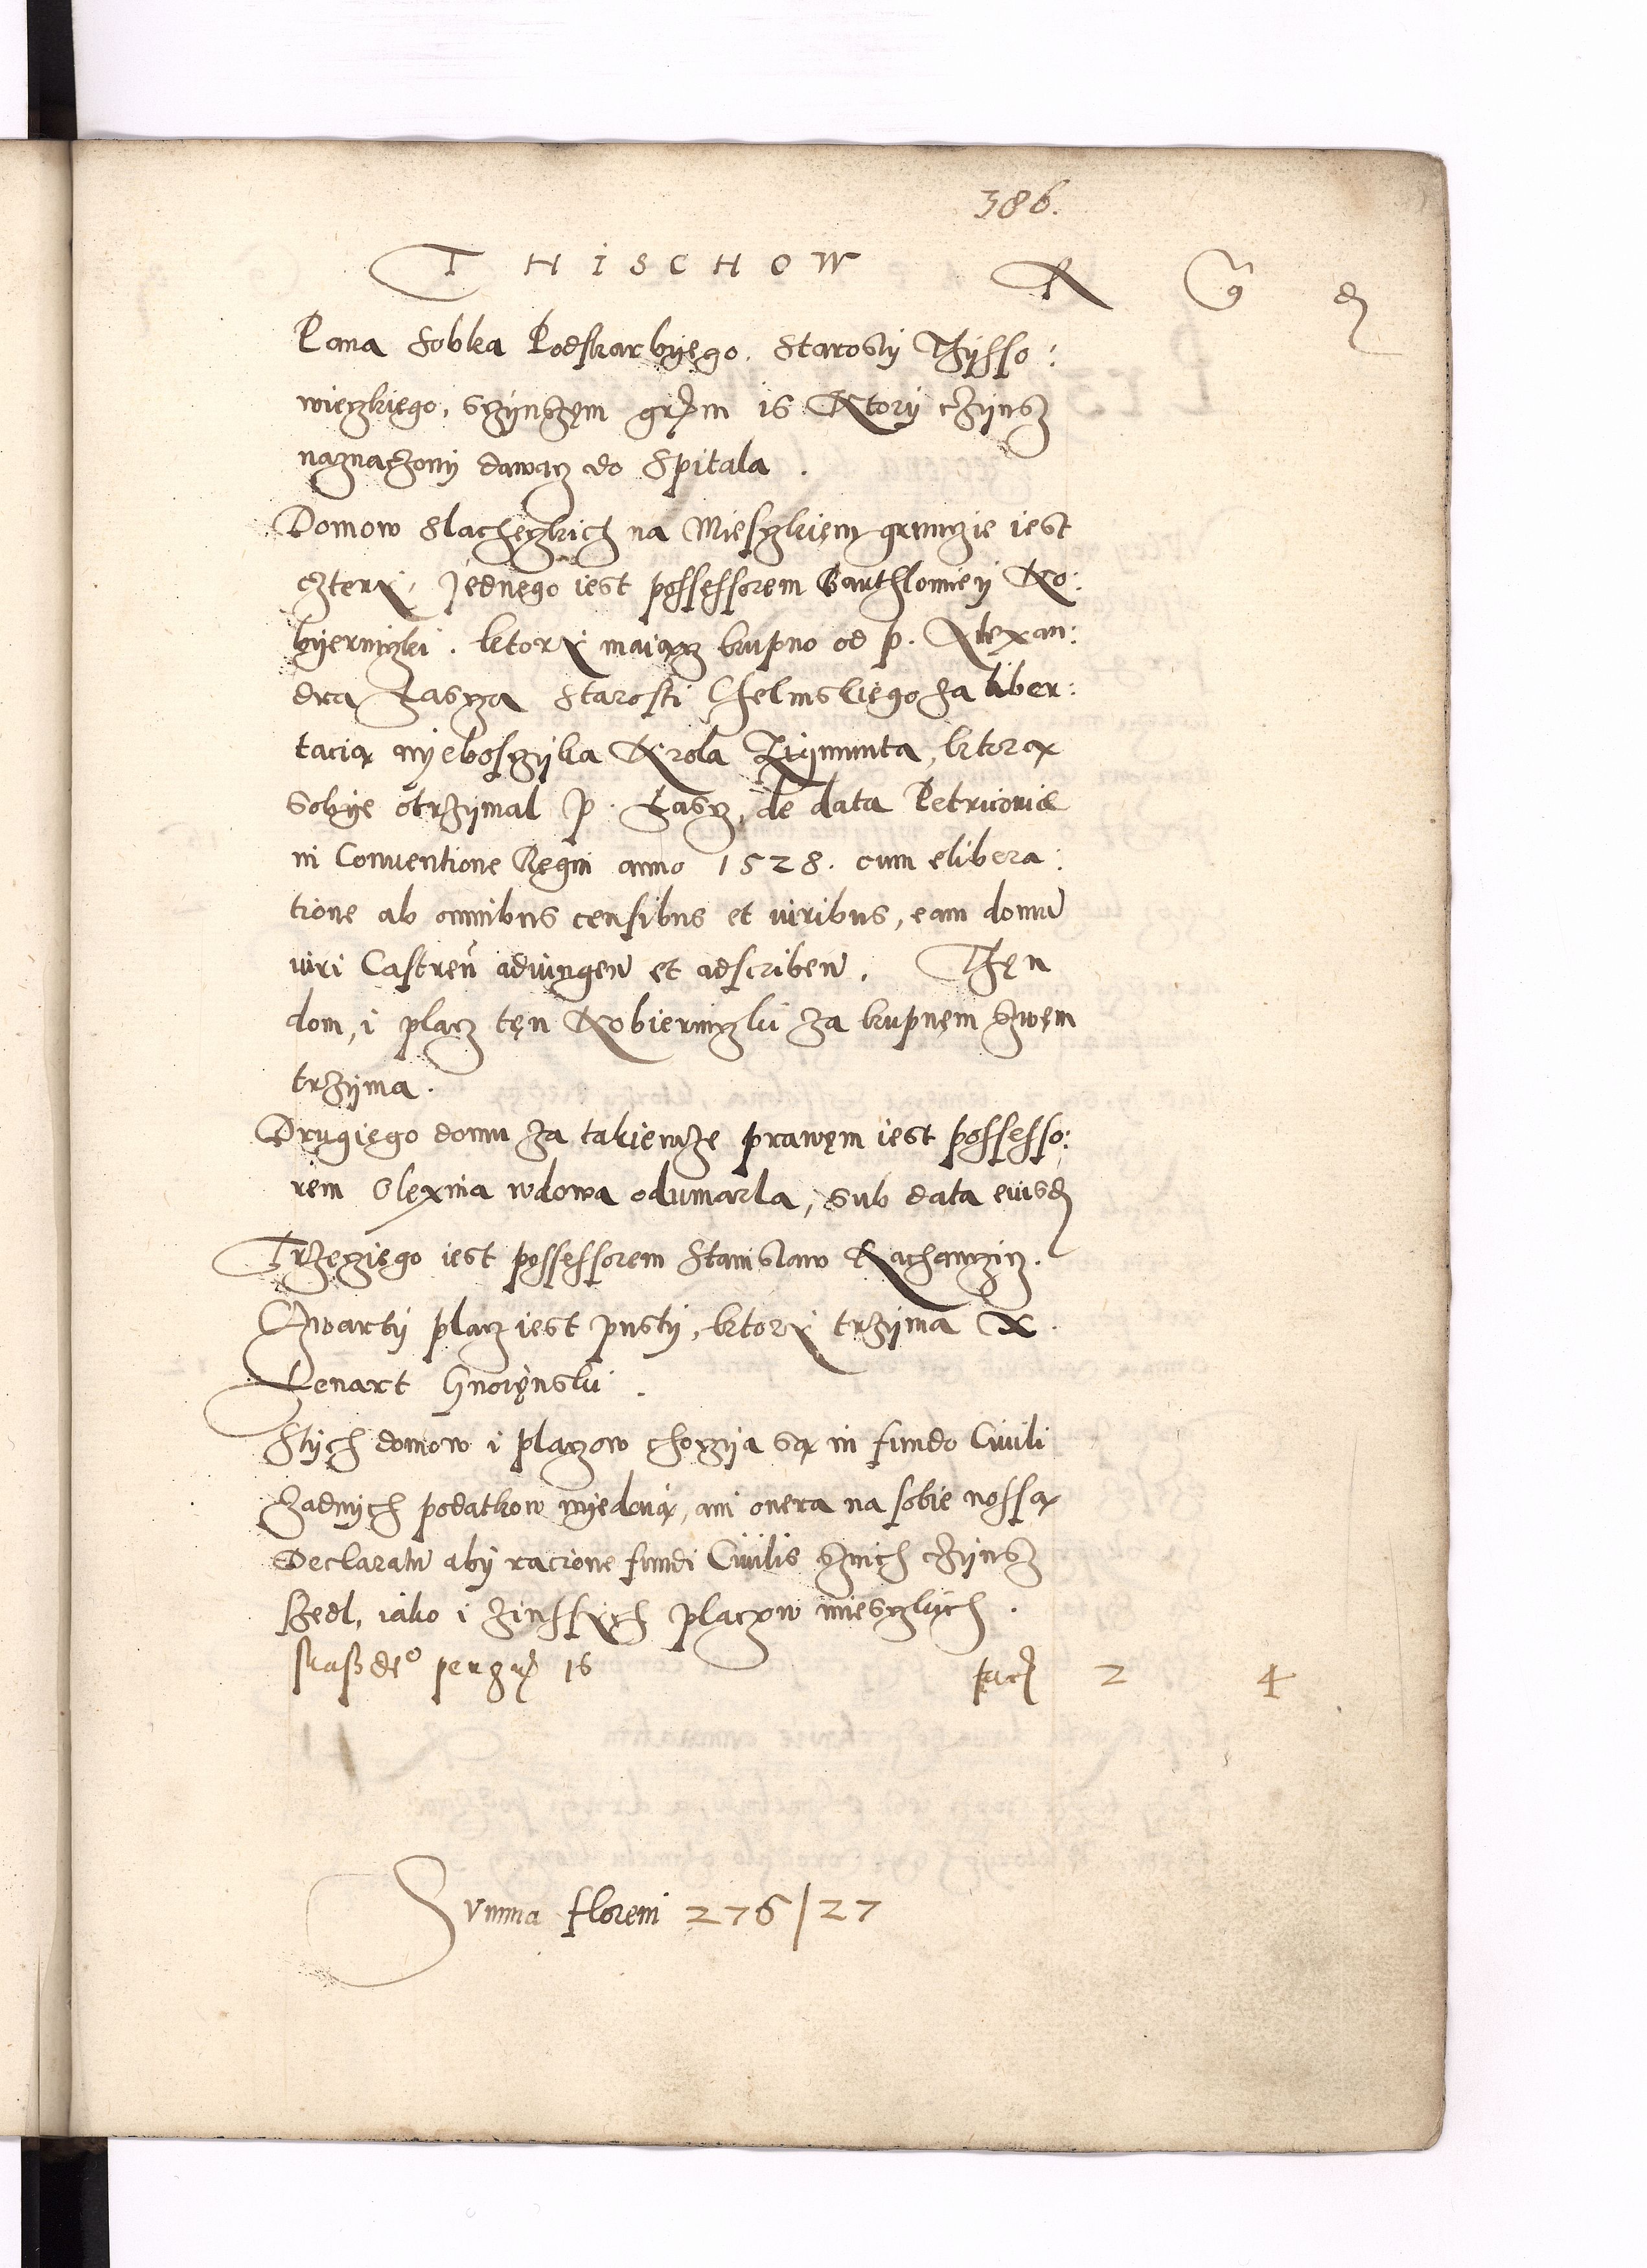 386.
THISCHOW
Pana Sobka Podskarbyęgo. Starosty Thysso:
wieczkięgo, Sczynschęm 16 Ktory czynsz
naznaczony dawacz do Spitala.
Domow Slacheczkich na Mieysczkięm grunczie iest
cztery, Jednęgo iest possessorem Barthlomiey Ko:
byerniczki. ktory maiącz kupno od p. Alexan:
dra Łascza Starosti Chelmskięgo za liber:
tacią nyeboszczyka Krola Zigmunta, ktorą
Sobye otrzymal p. Łascz, de data Petricoviæ
in Conventione Regni anno 1528. cum elibera:
tione ab omnibus censibus et iuribus, eam domū
iuri Castreñ adiungeñ et adscribeñ. Thęn
dom, i placz tęn Kobierniczki za kupnęm Swęm
trzyma.
Drugięgo domu za takiemże prawęm iest possesso:
rem Olexina wdowa odumarla, sub data eiusd
Trzeczięgo iest possessorem Stanislaw Rachanczicz.
Czwarty placz iest pusty, ktory trzyma X.
Lenart Gnoięnski.
Stych domow i placzow choczya są in fundo Civili
żadnych podatkow nyedaią, ani onera na sobie nossą
Declaratū aby racione fundi Civilis Snich czynsz
Szedl, iako i Zinssych placzow miesczkich.
per gr 16 facit 2 4
Summa floreni 276/27